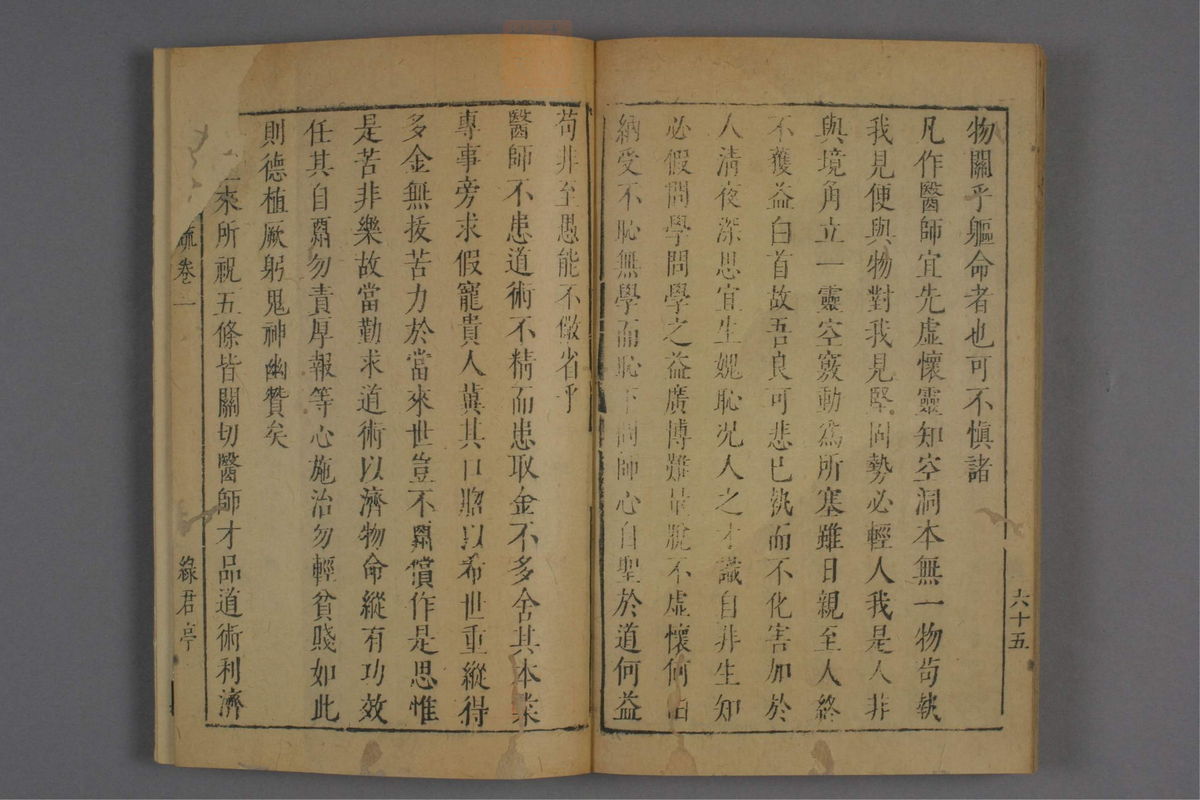 物關乎軀命者也可不慎諸
凡作醫師宜先虛懷靈知空洞本無一物苟執
我見便與物對我見堅固勢必輕人我是人非
與境角立一靈空竅動為所塞雖日親至人終
不獲益白首故吾良可悲已執而不化害加於
人清夜深思宜生媿恥况人之才識自非生知
必假問學問學之益廣博難量脫不虛懷何由
納受不恥無學而恥下問師心自聖於道何益
苟非至愚能不儆省乎
醫師不患道術不精而患取金不多舍其本業
專事旁求假寵貴人冀其口賜以希世重縱得
多金無拔苦力於當來世豈不酬償作是思惟
是苦非樂故當勤求道術以濟物命縱有功效
任其自酬勿責厚報等心施治勿輕貧賤如此
則德植厥躬鬼神幽贊矣
來所祝五條皆關切醫師才品道術利濟
疏卷一
綠君亭
六十五